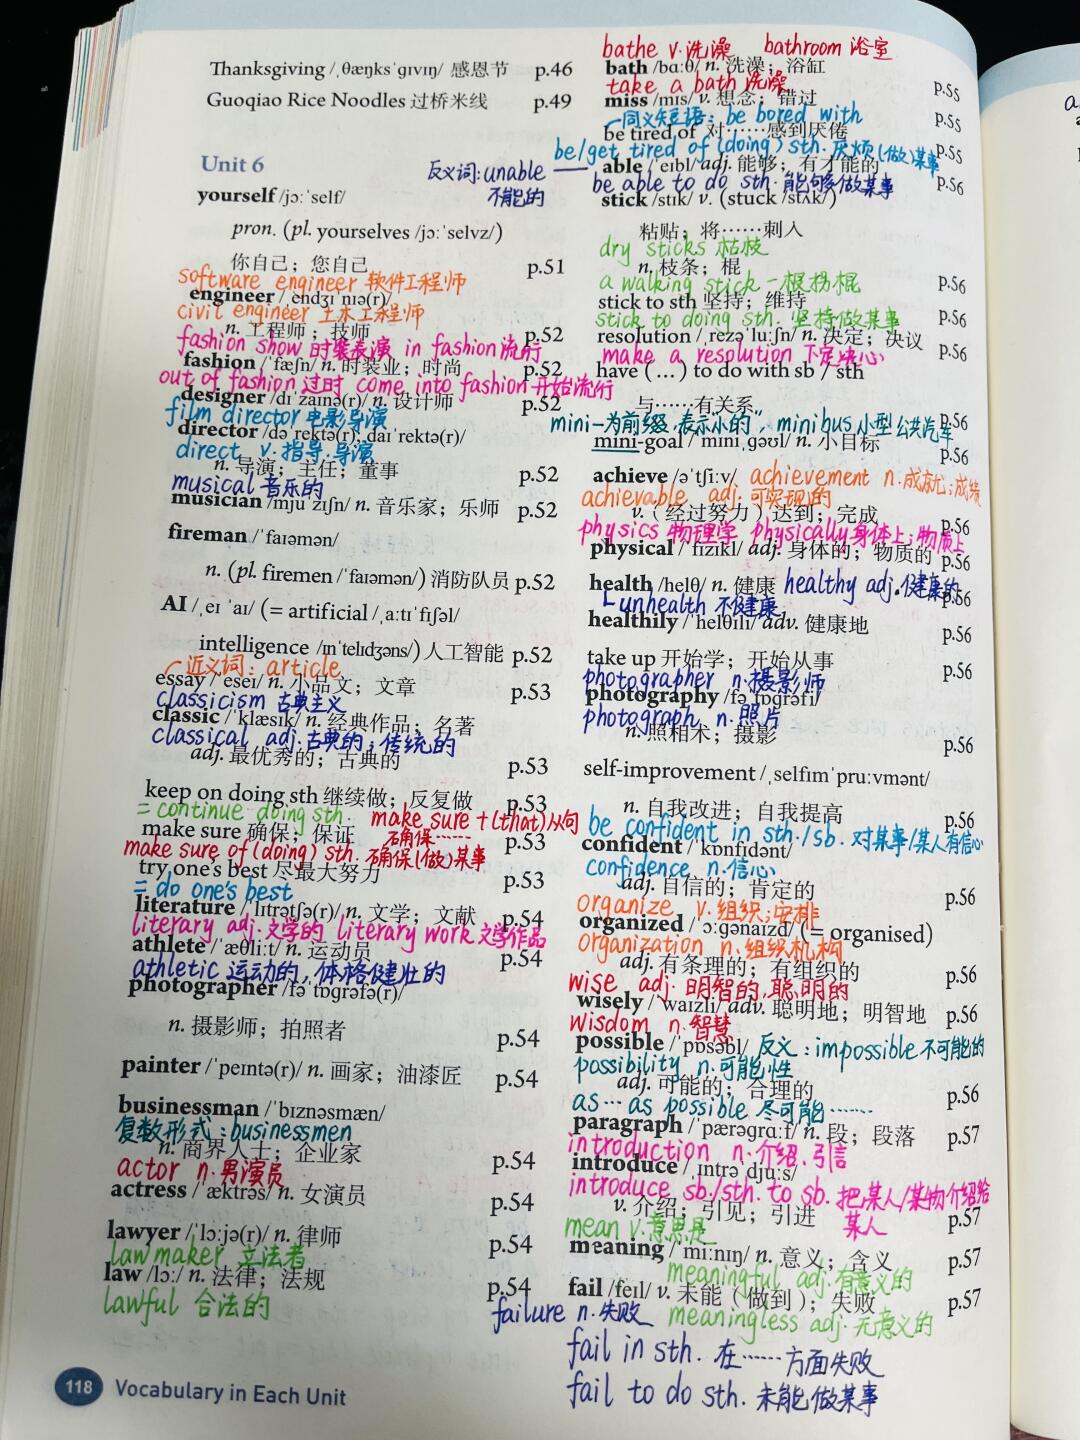 Thanksgiving /ˌθæŋksˈɡɪvɪŋ/ 感恩节 p.46
Guoqiao Rice Noodles 过桥米线 p.49
Unit 6
反义词: unable
不能的
yourself /jɔːˈself/
pron. (pl. yourselves /jɔːˈselvz/)
你自己；您自己 p.51
software engineer 软件工程师
engineer /ˌendʒɪˈnɪə(r)/
civil engineer 土木工程师
n. 工程师；技师 p.52
fashion show 时装表演 in fashion 流行
fashion /ˈfæʃn/ n. 时装业；时尚 p.52
out of fashion 过时 come into fashion 开始流行
designer /dɪˈzaɪnə(r)/ n. 设计师 p.52
film director 电影导演
director /dəˈrektə(r); daɪˈrektə(r)/
direct v. 指导.导演
n. 导演；主任；董事 p.52
musical 音乐的
musician /mjuˈzɪʃn/ n. 音乐家；乐师 p.52
fireman /ˈfaɪəmən/
n. (pl. firemen /ˈfaɪəmən/) 消防队员 p.52
AI /ˌeɪ ˈaɪ/ (= artificial /ˌɑːtɪˈfɪʃəl/
intelligence /ɪnˈtelɪdʒəns/) 人工智能 p.52
近义词: article
essay /ˈeseɪ/ n. 小品文；文章 p.53
classicism 古典主义
classic /ˈklæsɪk/ n. 经典作品；名著
classical adj.古典的；传统的
adj. 最优秀的；古典的 p.53
keep on doing sth 继续做；反复做 p.53
= continue doing sth. make sure + (that)从句
make sure 确保；保证 确保…… p.53
make sure of (doing) sth. 确保(做)某事
try one's best 尽最大努力 p.53
= do one's best
literature /ˈlɪtrətʃə(r)/ n. 文学；文献 p.54
literary adj.文学的 literary work 文学作品
athlete /ˈæθliːt/ n. 运动员 p.54
athletic 运动的，体格健壮的
photographer /fəˈtɒɡrəfə(r)/
n. 摄影师；拍照者 p.54
painter /ˈpeɪntə(r)/ n. 画家；油漆匠 p.54
businessman /ˈbɪznəsmæn/
复数形式: businessmen
n. 商界人士；企业家 p.54
actor n.男演员
actress /ˈæktrəs/ n. 女演员 p.54
lawyer /ˈlɔːjə(r)/ n. 律师 p.54
lawmaker 立法者
law /lɔː/ n. 法律；法规 p.54
lawful 合法的
bathe v.洗澡 bathroom 浴室
bath /bɑːθ/ n. 洗澡；浴缸 p.55
take a bath 洗澡
miss /mɪs/ v. 想念；错过 p.55
同义短语: be bored with
be tired of 对……感到厌倦 p.55
be/get tired of (doing) sth. 厌烦(做)某事
able /ˈeɪbl/ adj. 能够；有才能的 p.56
be able to do sth. 能够做某事
stick /stɪk/ v. (stuck /stʌk/)
粘贴；将……刺入
dry sticks 枯枝
n. 枝条；棍 p.56
a walking stick 一根拐棍
stick to sth 坚持；维持 p.56
stick to doing sth. 坚持做某事
resolution /ˌrezəˈluːʃn/ n. 决定；决议 p.56
make a resolution 下定决心
have (…) to do with sb / sth
与……有关系 p.56
mini-为前缀,表示"小的", minibus 小型公共汽车
mini-goal /ˈmɪni ˌɡəʊl/ n. 小目标 p.56
achieve /əˈtʃiːv/ achievement n.成就；成绩
achievable adj.可实现的
v.（经过努力）达到；完成 p.56
physics 物理学 physically 身体上；物质上
physical /ˈfɪzɪkl/ adj. 身体的；物质的 p.56
health /helθ/ n. 健康 healthy adj.健康的 p.56
unhealth 不健康
healthily /ˈhelθɪli/ adv. 健康地 p.56
take up 开始学；开始从事 p.56
photographer n.摄影师
photography /fəˈtɒɡrəfi/
photograph n.照片
n. 照相术；摄影 p.56
self-improvement /ˌselfɪmˈpruːvmənt/
n. 自我改进；自我提高 p.56
be confident in sth./sb. 对某事/某人有信心
confident /ˈkɒnfɪdənt/
confidence n.信心
adj. 自信的；肯定的 p.56
organize v.组织；安排
organized /ˈɔːɡənaɪzd/ (= organised)
organization n.组织机构
adj. 有条理的；有组织的 p.56
wise adj.明智的,聪明的
wisely /ˈwaɪzli/ adv. 聪明地；明智地 p.56
wisdom n.智慧
possible /ˈpɒsəbl/ 反义: impossible 不可能的
possibility n.可能性
adj. 可能的；合理的 p.56
as…as possible 尽可能……
paragraph /ˈpærəɡrɑːf/ n. 段；段落 p.57
introduction n.介绍.引言
introduce /ˌɪntrəˈdjuːs/
introduce sb./sth. to sb. 把某人/某物介绍给
v. 介绍；引见；引进 某人 p.57
mean v.意思是
meaning /ˈmiːnɪŋ/ n. 意义；含义 p.57
meaningful adj.有意义的
fail /feɪl/ v. 未能（做到）；失败 p.57
failure n.失败 meaningless adj.无意义的
fail in sth. 在……方面失败
fail to do sth. 未能做某事
118 Vocabulary in Each Unit